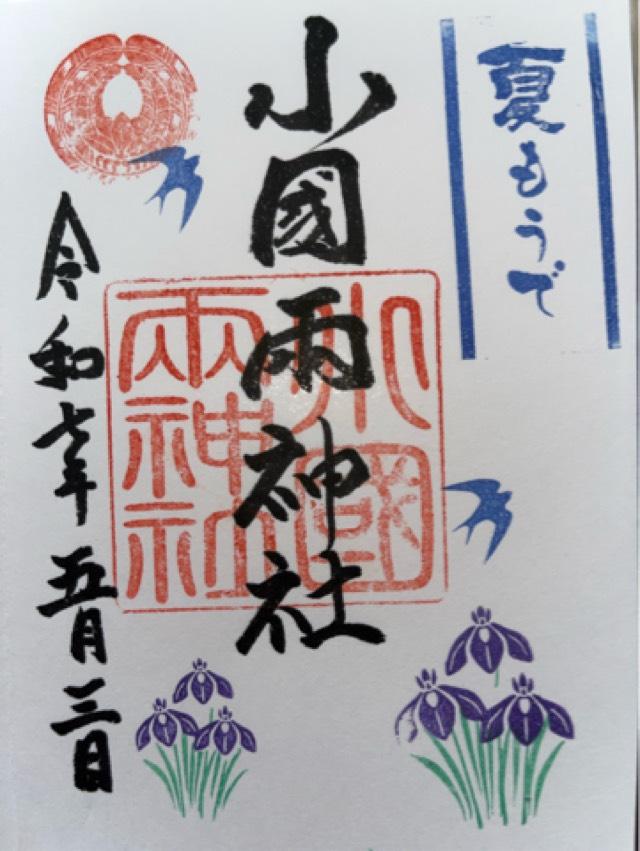 夏もうで
小國兩神社
小國
兩神社
令和七年五月三日